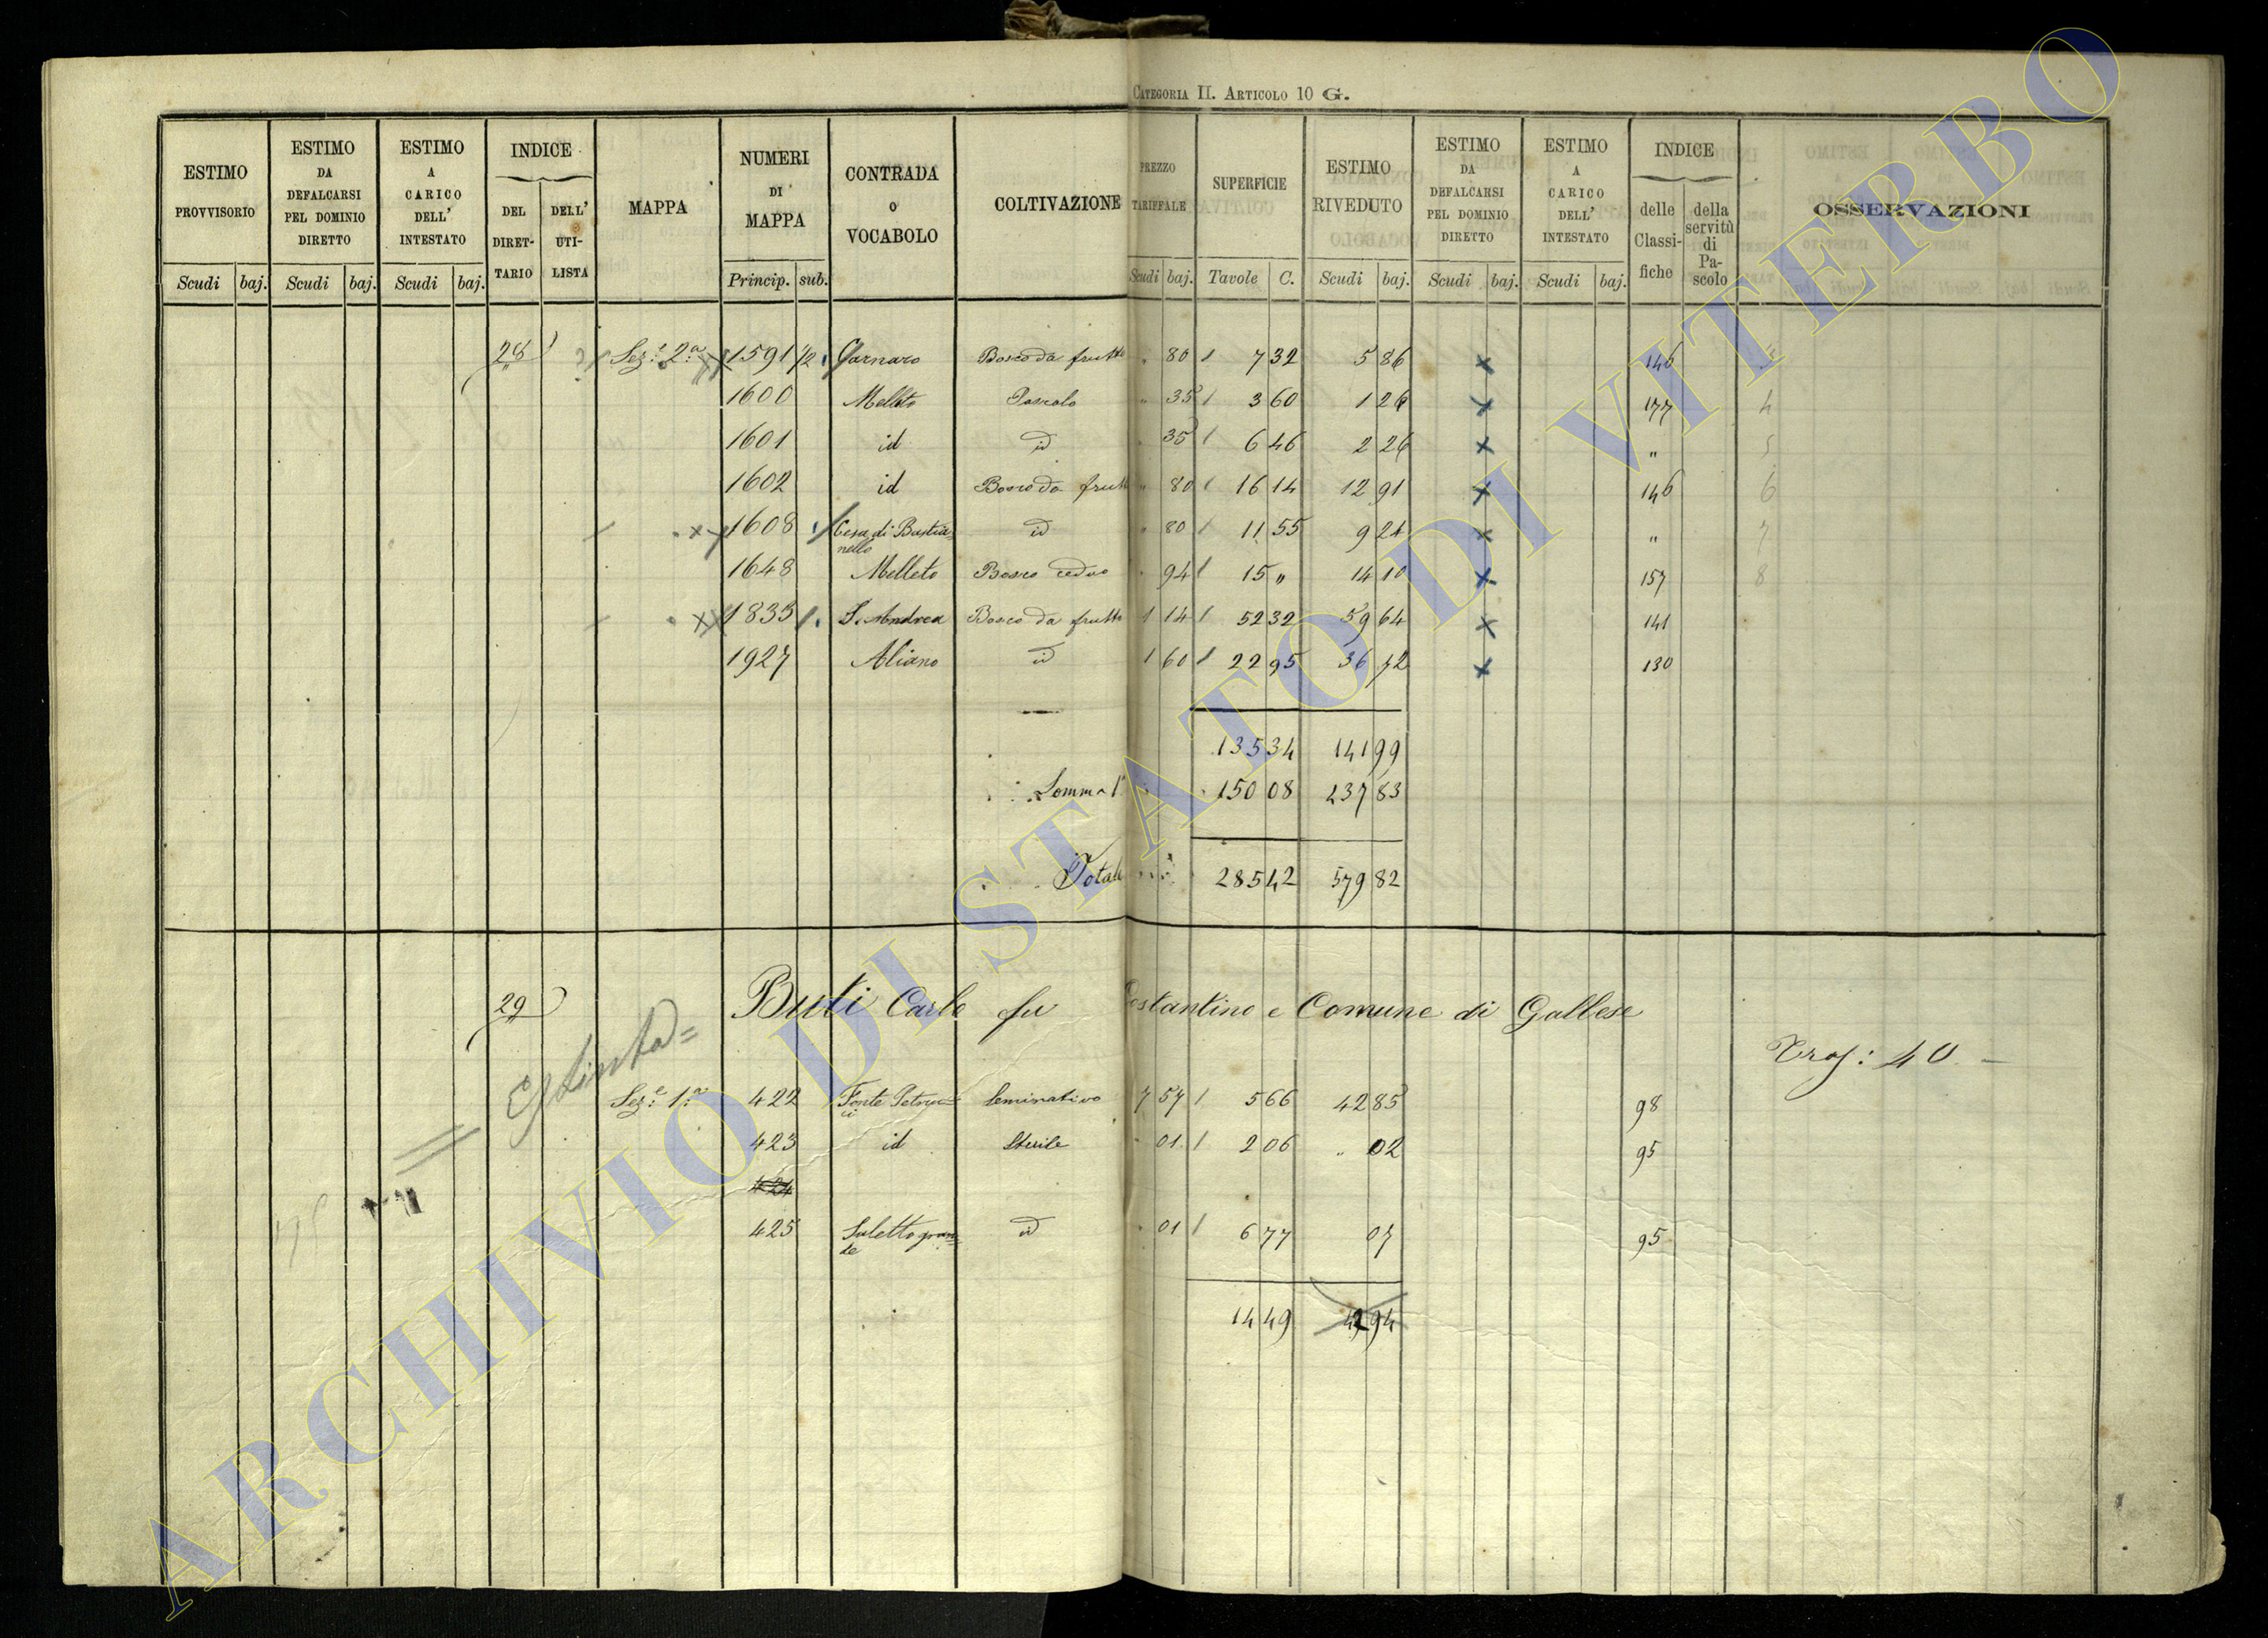 CATEGORIA II. ARTICOLO 10 G.
ESTIMO PROVVISORIO | ESTIMO DA DEFALCARSI PEL DOMINIO DIRETTO | ESTIMO A CARICO DELL' INTESTATO | INDICE DEL DIRETTARIO | DELL' UTILISTA | MAPPA | NUMERI DI MAPPA | CONTRADA O VOCABOLO | COLTIVAZIONE | PREZZO TARIFFALE | SUPERFICIE | ESTIMO RIVEDUTO | ESTIMO DA DEFALCARSI PEL DOMINIO DIRETTO | ESTIMO A CARICO DELL' INTESTATO | INDICE delle Classifiche | della servitù di Pascolo | OSSERVAZIONI
Scudi | baj. | Scudi | baj. | Scudi | baj. | Princip. | sub. | Scudi | baj. | Tavole | C. | Scudi | baj. | Scudi | baj. | Scudi | baj.
28 Sez.e 2.a 1591 1/2 Carnaro Bosco da frutto " 80 7 32 5 86 x 146 3
1600 Melleto Pascolo " 35 3 60 1 26 x 177 4
1601 id id " 35 6 46 2 26 x " 5
1602 id Bosco da frutto " 80 16 14 12 91 x 146 6
1608 Cesa di Bastianello id " 80 11 55 9 24 x " 7
1648 Melleto Bosco ceduo " 94 15 " 14 10 x 157 8
1833 S. Andrea Bosco da frutto 1 14 52 32 59 64 x 141
1927 Aliano id 1 60 22 95 36 72 x 130
135 34 141 99
Somma 150 08 237 83
Totale 285 42 579 82
29 Buti Carlo fu Costantino e Comune di Gallese
Estinta
Trasp: 40
Sez.e 1.a 422 Fonte Petrucci Seminativo 7 57 5 66 42 85 98
423 id Sterile " 01 2 06 " 02 95
424
425 Saletto grande id " 01 6 77 07 95
14 49 42 94
ARCHIVIO DI STATO DI VITERBO